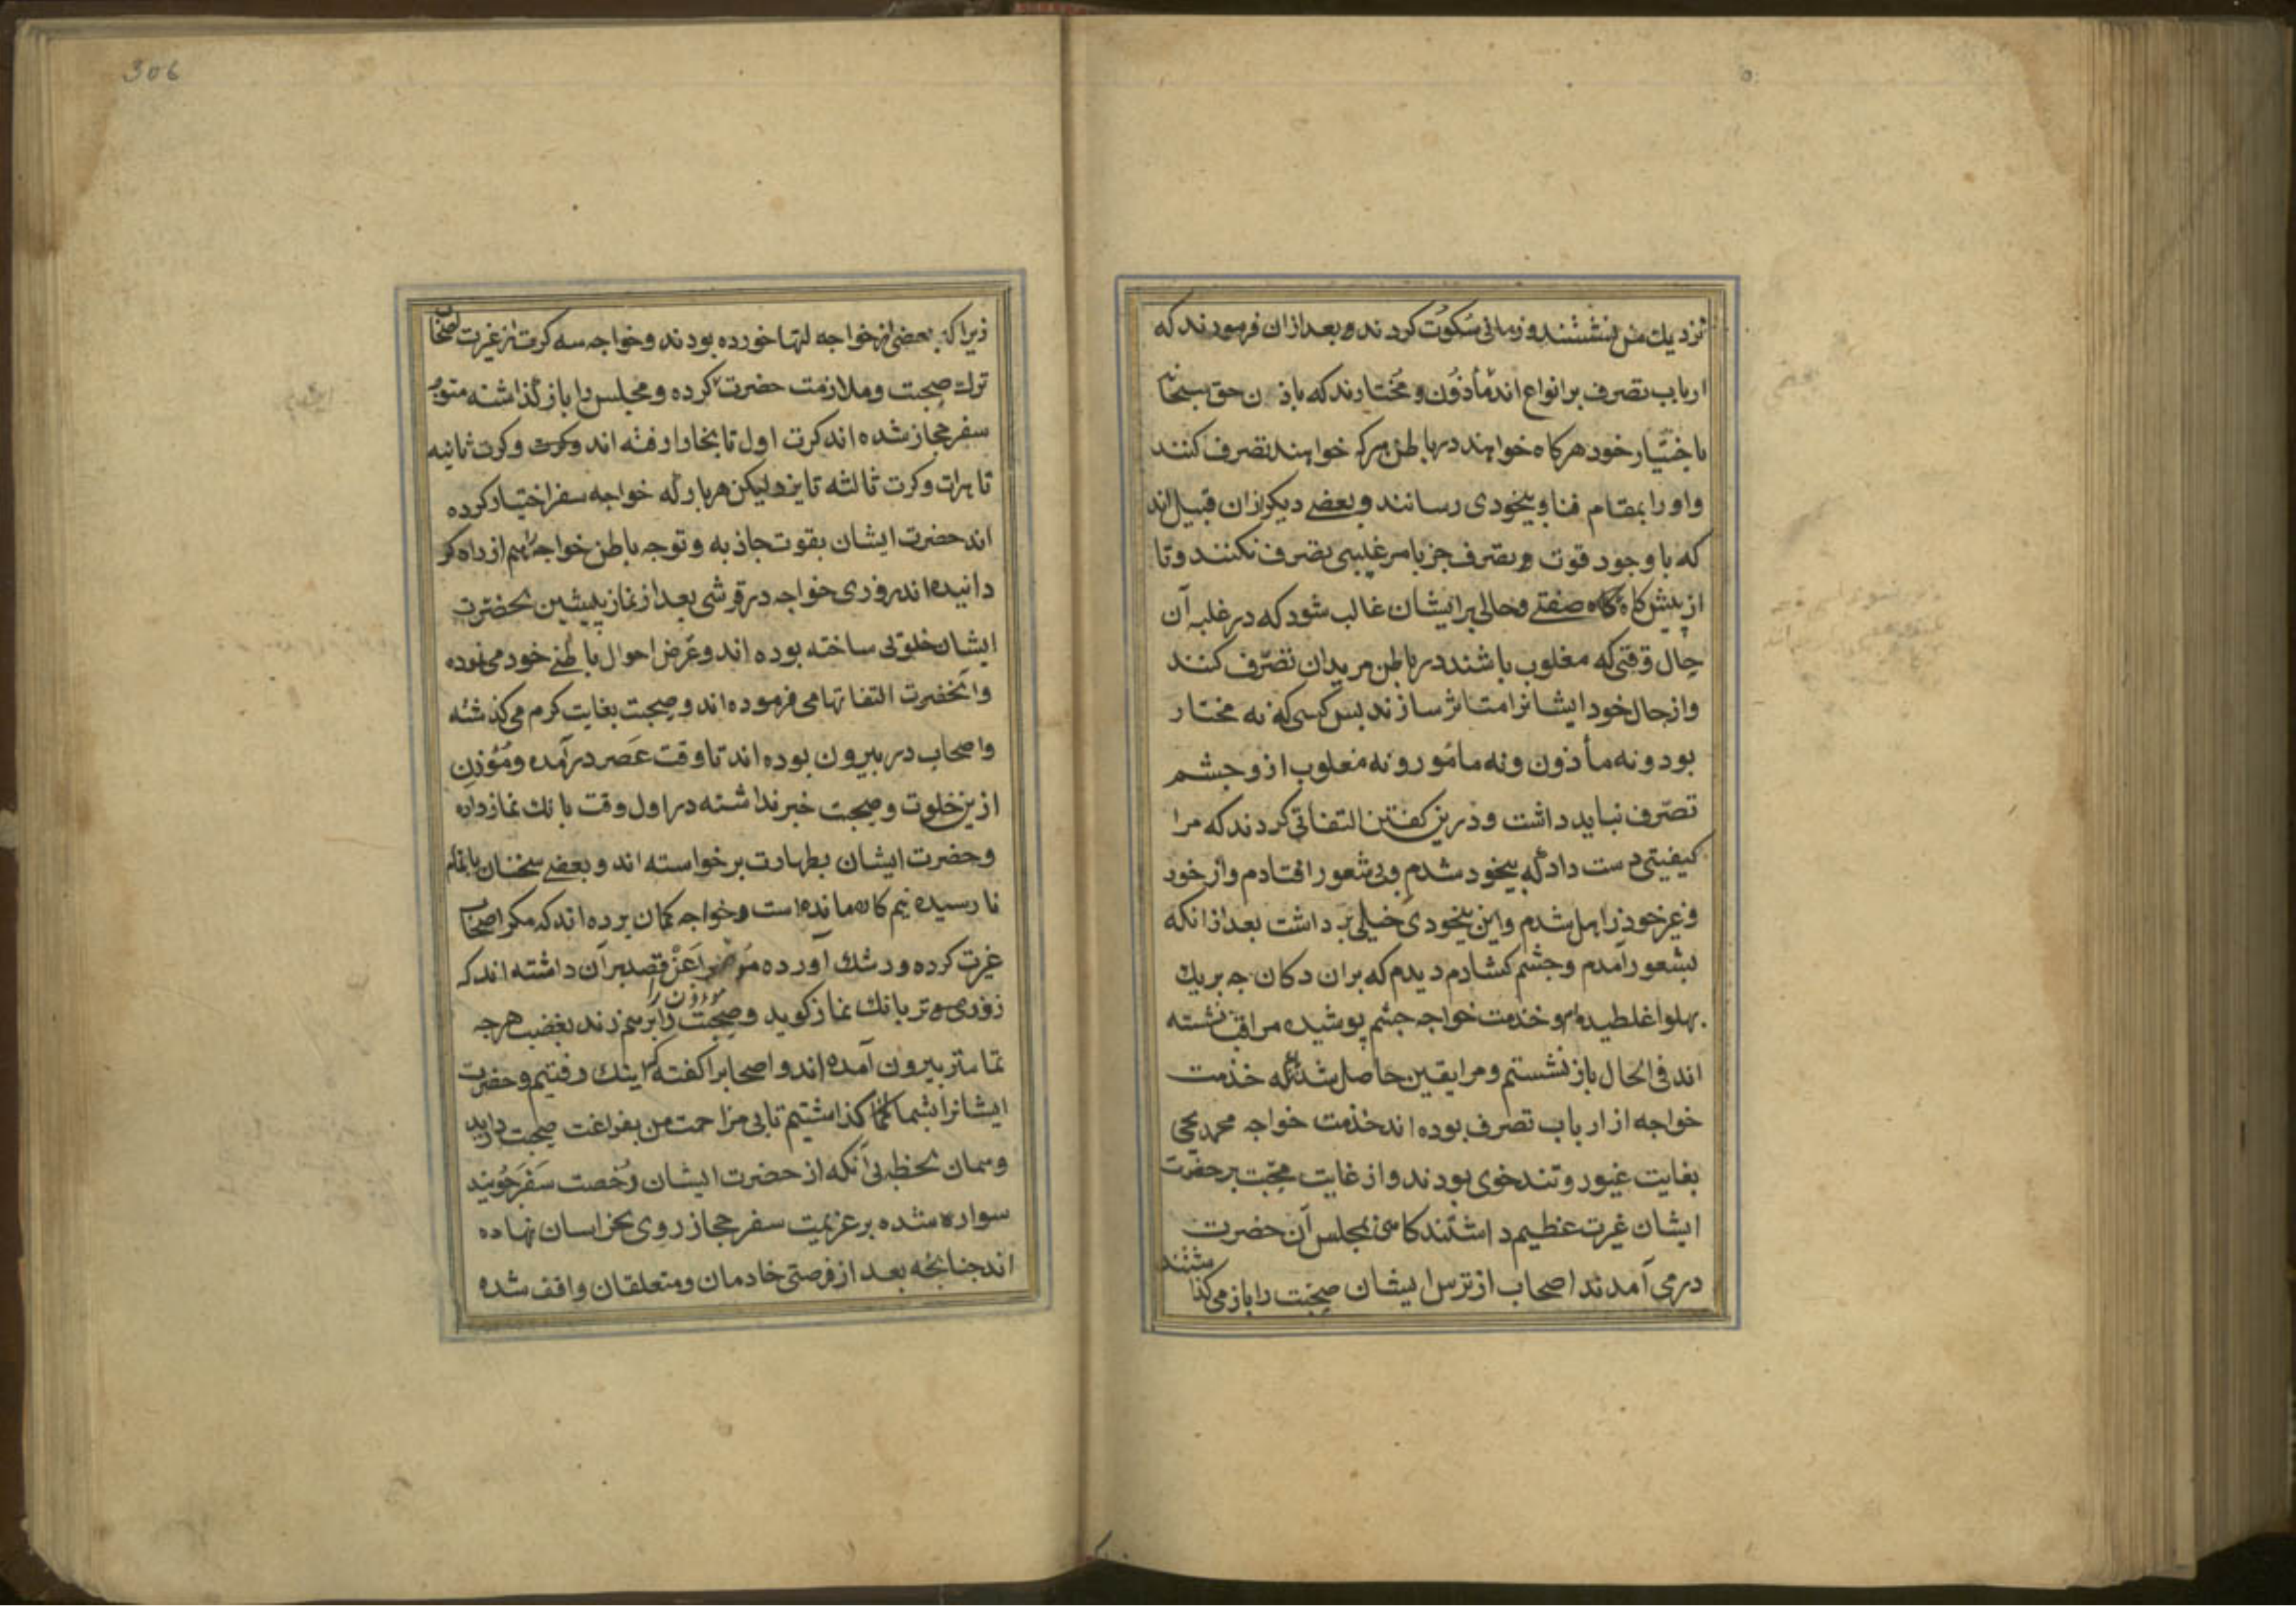 نزدیك من بنشستند و زمانی سُکوُت کردند و بعد ازان فرمودند که
ارباب تصرف بر انواع اند مأذوُن و مُختارند که باذن حق سبحانه
باختیار خود هرکاه خواهند در باطن هرکه خواهند تصرف کنند
و او را بمقام فنا و بیخودی رسانند و بعضے دیکر ازان قبیل اند
که با وجود قوت و تصرف جز بامر غیبی تصرف نکنند و تا
از پیشکاه کاه صفتے و حالی بر ایشان غالب شود که در غلبه آن
حال وقتی که مغلوب باشند در باطن مریدان تصّرف کنند
و از حال خود ایشانرا متاثر سازند بس کسی که نه مختار
بود و نه مأذون و نه مامُور و نه مغلوب ازو جشم
تصّرف نباید داشت و درین کفتن التفاتی کردند که مرا
کیفیتی دست داد که بیخود شدم و بی شعور افتادم و از خود
و غیر خود زاهل شدم و این بیخودی خیلی بر داشت بعد ازانکه
بشعور آمدم و جشم کشادم دیدم که بران دکان جه بر یك
بهلوا غلطیده ام و خدمت خواجه جشم پوشیده مراقب نشسته
اند فی الحال باز نشستم و مرا یقین حاصل شد که خدمت
خواجه از ارباب تصرف بوده اند خدمت خواجه محمد یحیی
بغایت غیور و تند خوی بودند و از غایت محبّت بر حضرت
ایشان غیرت عظیم داشتند کاهی بمجلس آن حضرت
در می آمدند اصحاب از ترس ایشان صحبت را باز می کذاشتند
306
زیرا که بعضی از خواجه لتها خورده بودند و خواجه سه کرت از غیرت اصحاب
ترك صحبت و ملازمت حضرت کرده و مجلس را باز کذاشته متوجه
سفر حجاز شده اند کرت اول تا بخارا رفته اند و کرت و کرت ثانیه
تا هرات و کرت ثالثه تا یزد لیکن هر بار که خواجه سفر اختیار کرده
اند حضرت ایشان بقوت جاذبه و توجه باطن خواجه را هم از راه کر
دانیده اند روزی خواجه در قرشی بعد از نماز پیشین بحضرت
ایشان خلوتی ساخته بوده اند و عرض احوال باطنے خود می نموده
و آنحضرت التفاتها می فرموده اند و صحبت بغایت کرم می کذشته
و اصحاب در بیرون بوده اند تا وقت عصر در آمده و مُؤذن
ازین خلوت و صحبت خبر نداشته در اول وقت بانك نماز داده
و حضرت ایشان بطهارت برخواسته اند و بعضے سخنان باتمام
نا رسیده نیم کاره مانده است و خواجه کمان برده اند که مکر اصحاب
غیرت کرده و رشك آورده مؤذن را قصد بر آن داشته اند که
زود تر بانك نماز کوید و صحبت را بر هم زند بغضب هر جه
تمامتر بیرون آمده اند و اصحابرا کفته که اینك رفتیم و حضرت
ایشانرا بشما کذاشتیم تا بی مزاحمت من بفراغت صحبت دارید
و همان لحظه بی آنکه از حضرت ایشان رُخصت سَفر جُویند
سواره شده بر عزیمت سفر حجاز روی بخراسان نهاده
اند جنانجه بعد از فرصتی خادمان و متعلقان واقف شده